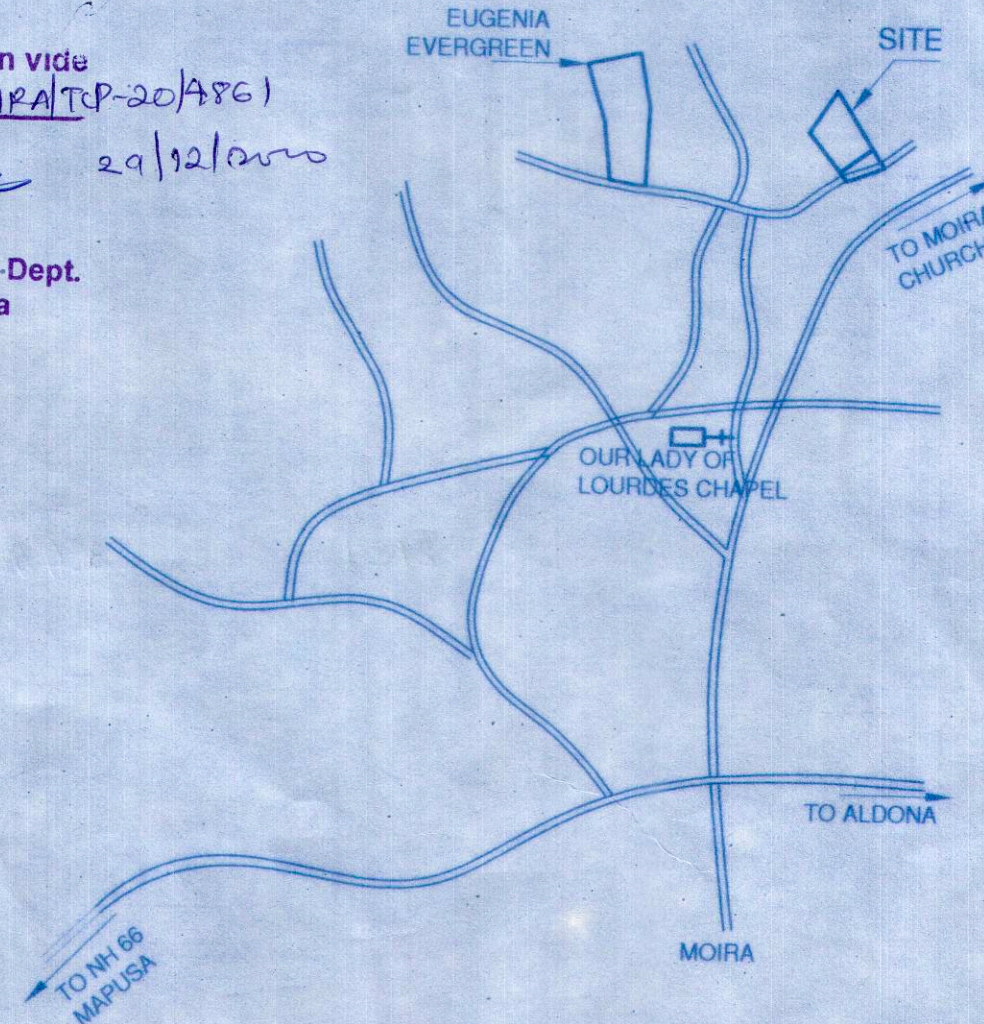 n vide
IRA/TCP-20/4861
29/12/2020
-Dept.
a
EUGENIA
EVERGREEN
SITE
TO MOIRA
CHURCH
OUR LADY OF
LOURDES CHAPEL
TO ALDONA
MOIRA
TO NH 66
MAPUSA